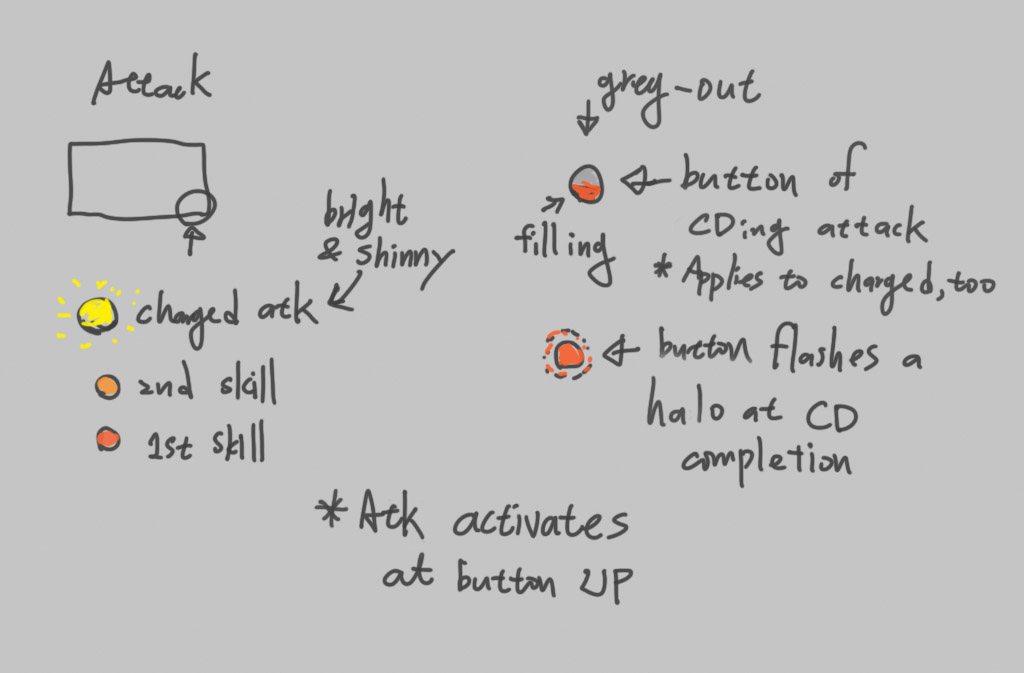 Attack
bright
& shinny
charged atk
2nd skill
1st skill
grey-out
button of
CDing attack
filling
* Applies to charged, too
button flashes a
halo at CD
completion
* Atk activates
at button UP